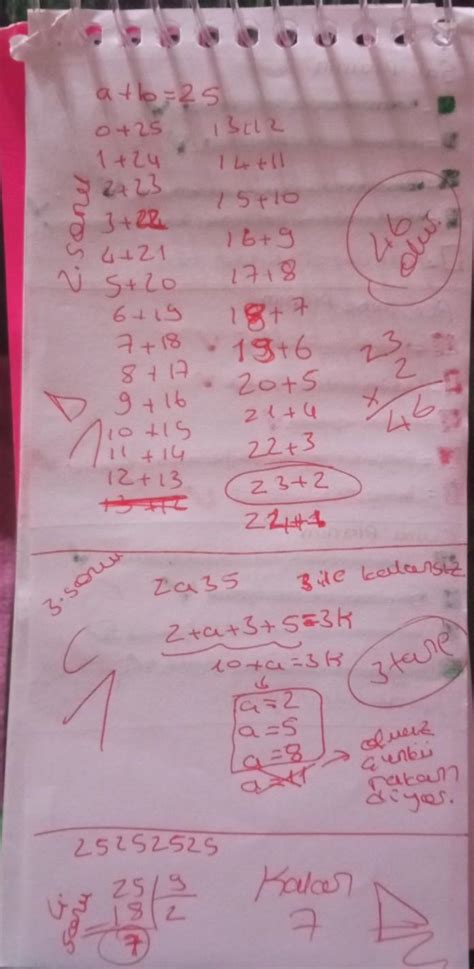 a+b=25
0+25 13+12
1+24 14+11
2+23 15+10
3+22 16+9
4+21 17+8
5+20 18+7
6+19 19+6
7+18 20+5
8+17 21+4
9+16 22+3
10+15 23+2
11+14
12+13
13+12
2. soru
46
olur.
23
2
x
46
3. soru
2a35 3 ile kalansız
2+a+3+5=3k
10+a=3k
a=2
a=5
a=8
a=11
3 tane
olmaz
çünkü
rakam
diyor.
25252525
soru
25 9
18 2
7
Kalan
7